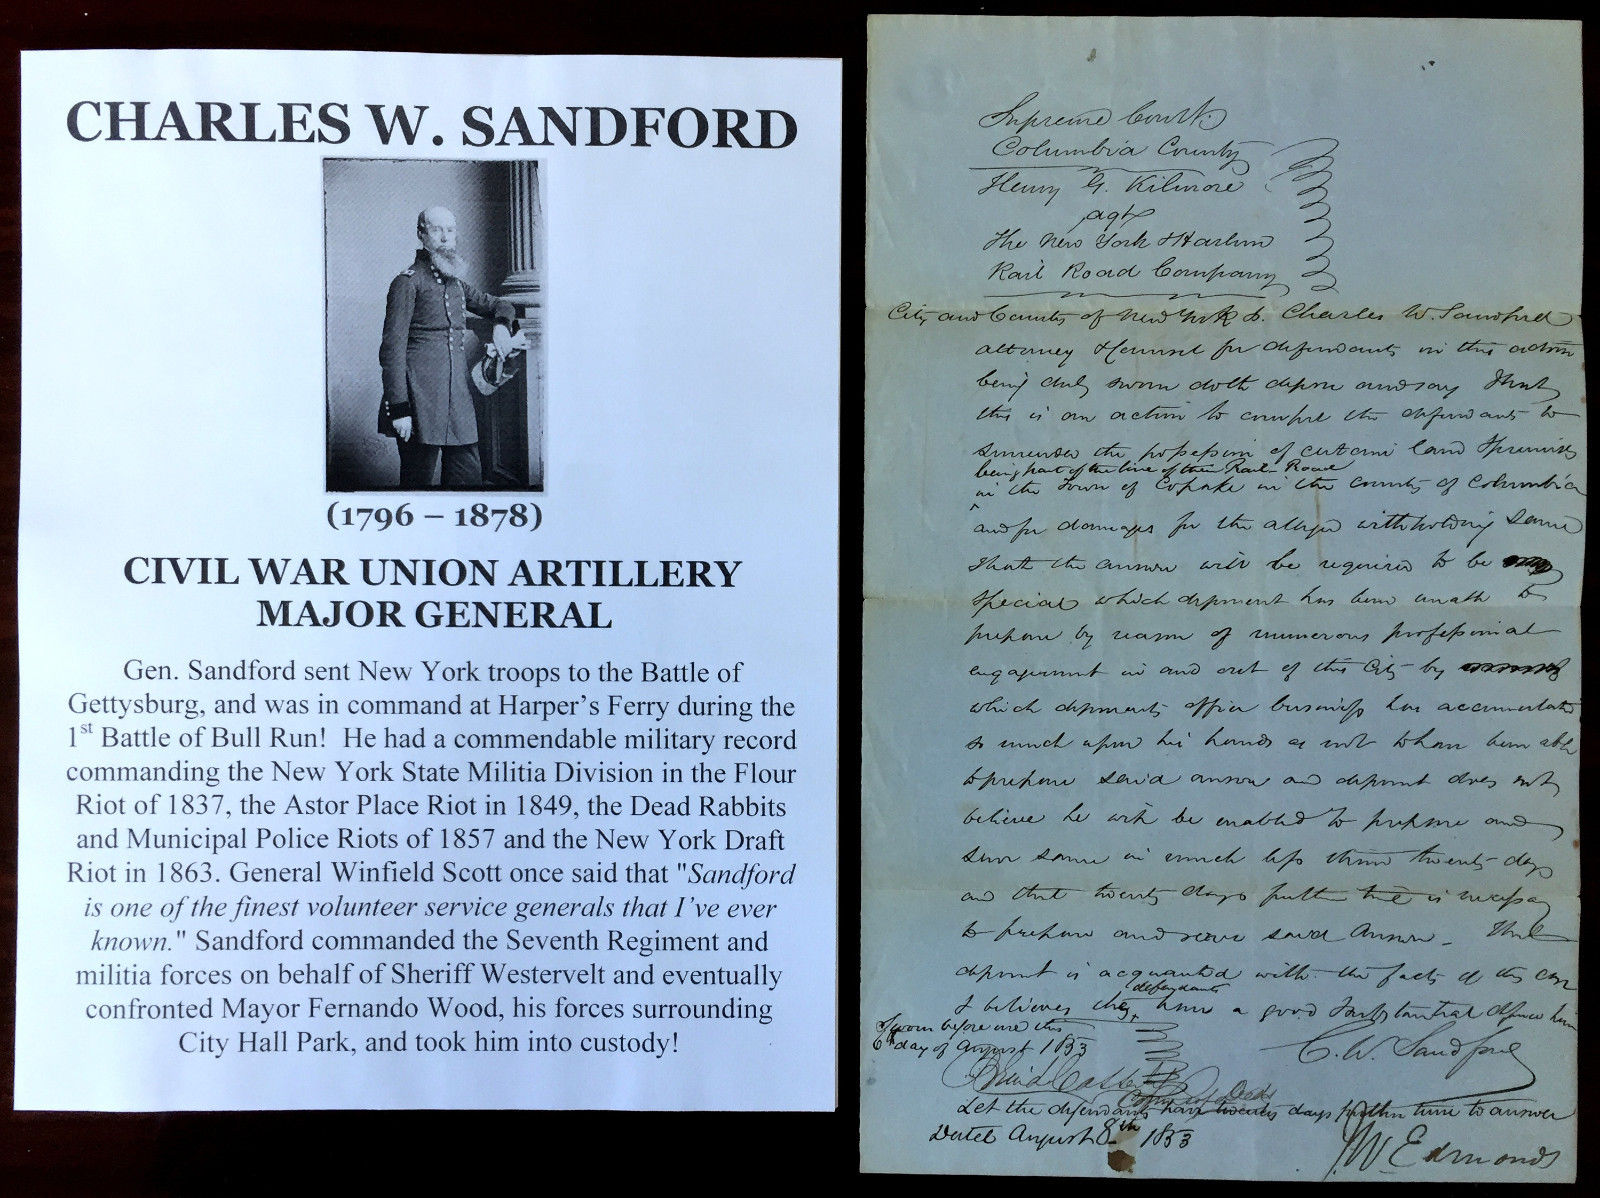 CHARLES W. SANDFORD
(1796 – 1878)
CIVIL WAR UNION ARTILLERY
MAJOR GENERAL
Gen. Sandford sent New York troops to the Battle of
Gettysburg, and was in command at Harper's Ferry during the
1st Battle of Bull Run! He had a commendable military record
commanding the New York State Militia Division in the Flour
Riot of 1837, the Astor Place Riot in 1849, the Dead Rabbits
and Municipal Police Riots of 1857 and the New York Draft
Riot in 1863. General Winfield Scott once said that "Sandford
is one of the finest volunteer service generals that I've ever
known." Sandford commanded the Seventh Regiment and
militia forces on behalf of Sheriff Westervelt and eventually
confronted Mayor Fernando Wood, his forces surrounding
City Hall Park, and took him into custody!
Supreme Court
Columbia County
Henry G. Kilmore
agt
The New York & Harlem
Rail Road Company
City and County of New York Ss. Charles W. Sandford
attorney & counsel for defendants in this action
being duly sworn doth depose and say That
this is an action to compel the defendants to
surrender the possession of certain land & premises
being part of the line of their Rail Road
in the Town of Copake in the County of Columbia
and for damages for the alleged withholding same
That the answer will be required to be
special which deponent has been unable to
prepare by reason of numerous professional
engagements in and out of this City by
which deponents office business has accumulated
so much upon his hands as not to have been able
to prepare said answer and deponent does not
believe he will be enabled to prepare and
serve same in much less than twenty days
and that twenty days further time is necessary
to prepare and serve said answer. That
deponent is acquainted with the facts of this case
& believes the defendants have a good & substantial defence
Sworn before me this
6th day of August 1853
C. W. Sandford
Let the defendants have twenty days further time to answer
Dated August 8th 1853
J W Edmonds